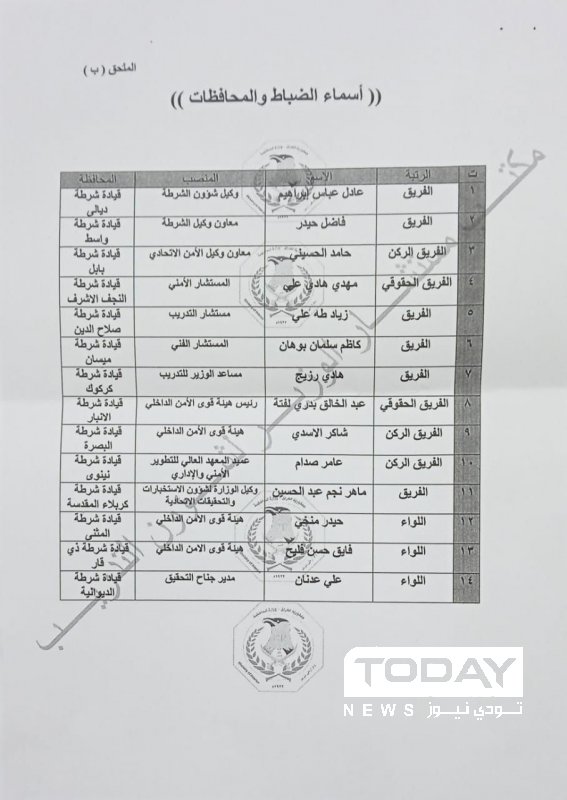 الملحق ( ب )
(( أسماء الضباط والمحافظات ))
ت الرتبة الاسم المنصب المحافظة
١ الفريق عادل عباس ابراهيم وكيل شؤون الشرطة قيادة شرطة
ديالى
٢ الفريق فاضل حيدر معاون وكيل الشرطة قيادة شرطة
واسط
٣ الفريق الركن حامد الحسيني معاون وكيل الأمن الاتحادي قيادة شرطة
بابل
٤ الفريق الحقوقي مهدي هادي علي المستشار الأمني قيادة شرطة
النجف الاشرف
٥ الفريق زياد طه علي مستشار التدريب قيادة شرطة
صلاح الدين
٦ الفريق كاظم سلمان بوهان المستشار الفني قيادة شرطة
ميسان
٧ الفريق هادي رزيج مساعد الوزير للتدريب قيادة شرطة
كركوك
٨ الفريق الحقوقي عبد الخالق بدري لفتة رئيس هيئة قوى الأمن الداخلي قيادة شرطة
الانبار
٩ الفريق الركن شاكر الاسدي هيئة قوى الامن الداخلي قيادة شرطة
البصرة
١٠ الفريق الركن عامر صدام عميد المعهد العالي للتطوير قيادة شرطة
الأمني والإداري نينوى
١١ الفريق ماهر نجم عبد الحسين وكيل الوزارة لشؤون الاستخبارات قيادة شرطة
والتحقيقات الاتحادية كربلاء المقدسة
١٢ اللواء حيدر منخي هيئة قوى الامن الداخلي قيادة شرطة
المثنى
١٣ اللواء فايق حسن فليح هيئة قوى الامن الداخلي قيادة شرطة ذي
قار
١٤ اللواء علي عدنان مدير جناح التحقيق قيادة شرطة
الديوانية
مكتب مستشار الوزير لشؤون التدريب
TODAY
NEWS تودي نيوز